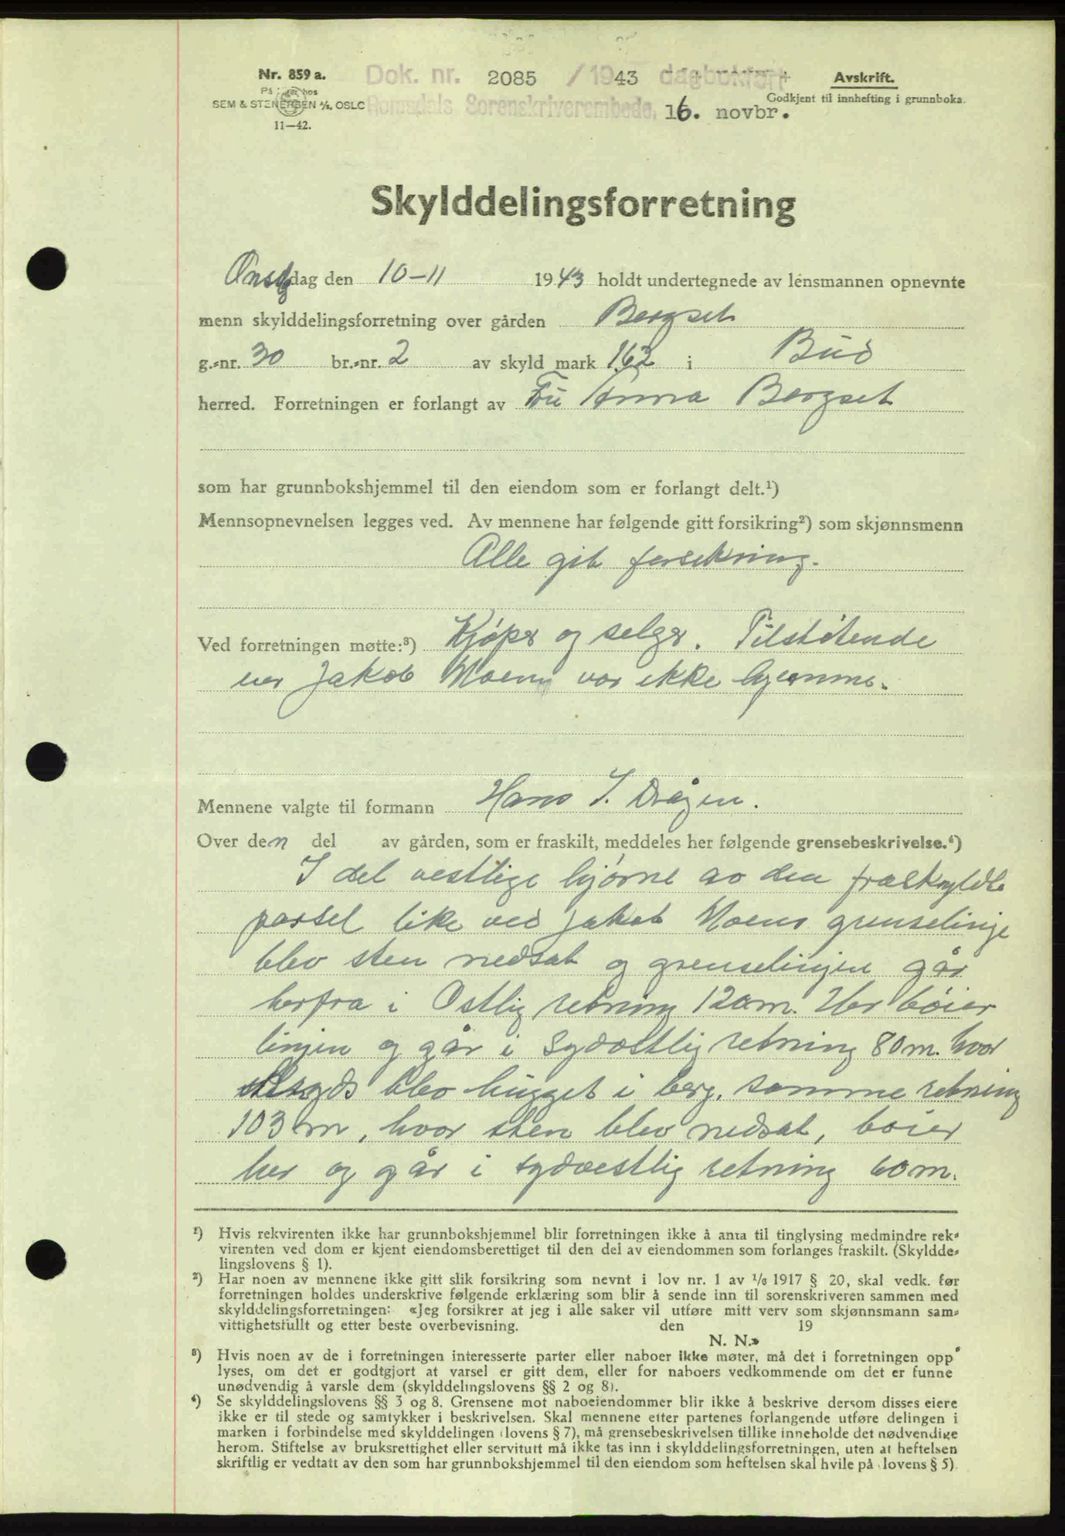 Nr. 859 a.
På  hos
SEM & STENERSEN A/S, OSLO
11—42.
Dok. nr. 2085 /1943 dagbokført
Romsdals Sorenskriverembede, 16. novbr.
Avskrift.
Godkjent til innhefting i grunnboka.
Skylddelingsforretning
Onsdag den 10-11 1943 holdt undertegnede av lensmannen opnevnte
menn skylddelingsforretning over gården Bergset
g.-nr. 30 br.-nr. 2 av skyld mark 1,62 i Bud
herred. Forretningen er forlangt av Fru Anna Bergset
som har grunnbokshjemmel til den eiendom som er forlangt delt.¹)
Mennsopnevnelsen legges ved. Av mennene har følgende gitt forsikring²) som skjønnsmenn
Alle git forsikring.
Ved forretningen møtte:³) Kjøper og selger. Tilstøtende
eier Jakob Moen var ikke hjemme.
Mennene valgte til formann Hans I. Drågen.
Over den del av gården, som er fraskilt, meddeles her følgende grensebeskrivelse.⁴)
I det vestlige hjørne av den fraskyldte
parsel like ved Jakob Moens grenselinje
blev sten nedsat og grenselinjen går
herfra i Østlig retning 120m. Her bøier
linjen og går i sydøstlig retning 80m. hvor
kryds blev hugget i berg, samme retning
103 m, hvor sten blev nedsat, bøier
her og går i sydvestlig retning 60m.
¹) Hvis rekvirenten ikke har grunnbokshjemmel blir forretningen ikke å anta til tinglysing medmindre rek-
virenten ved dom er kjent eiendomsberettiget til den del av eiendommen som forlanges fraskilt. (Skylddе-
lingslovens § 1).
²) Har noen av mennene ikke gitt slik forsikring som nevnt i lov nr. 1 av 1/6 1917 § 20, skal vedk. før
forretningen holdes underskrive følgende erklæring som blir å sende inn til sorenskriveren sammen med
skylddelingsforretningen: «Jeg forsikrer at jeg i alle saker vil utføre mitt verv som skjønnsmann sam-
vittighetsfullt og etter beste overbevisning. den 19
N. N.»
³) Hvis noen av de i forretningen interesserte parter eller naboer ikke møter, må det i forretningen opp-
lyses, om det er godtgjort at varsel er gitt dem, eller for naboers vedkommende om det er funne
unødvendig å varsle dem (skylddelingslovens §§ 2 og 8).
⁴) Se skylddelingslovens §§ 3 og 8. Grensene mot naboeiendommer blir ikke å beskrive dersom disses eiere
ikke er til stede og samtykker i beskrivelsen. Skal mennene etter partenes forlangende utføre delingen i
marken i forbindelse med skylddelingen (lovens § 7), må grensebeskrivelsen tillike inneholde det nødvendige
herom. Stiftelse av bruksrettighet eller servitutt må ikke tas inn i skylddelingsforretningen, uten at heftelsen
skriftlig er vedtatt av den som har grunnbokshjemmel til den eiendom som heftelsen skal hvile på (lovens § 5)